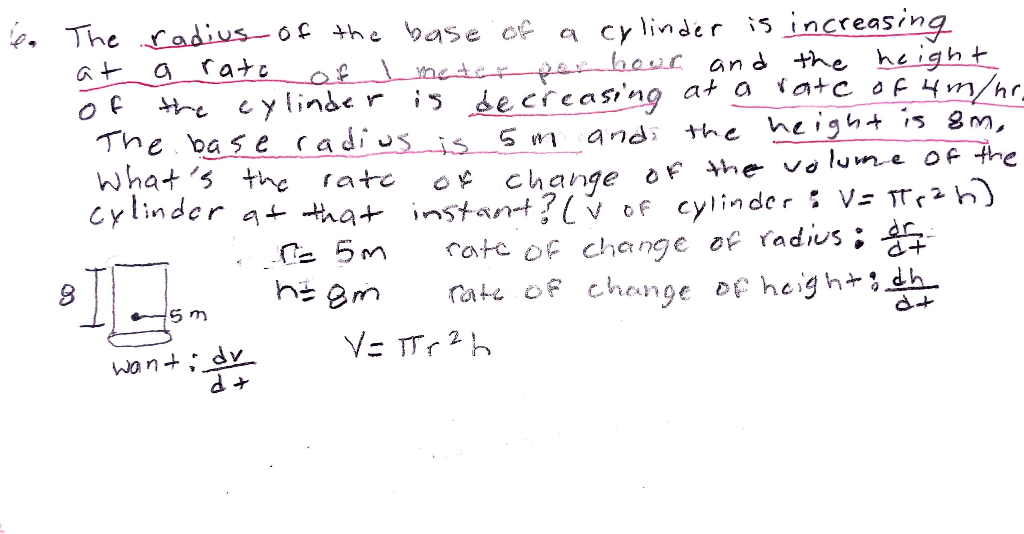 6. The radius of the base of a cylinder is increasing
at a rate of 1 meter per hour and the height
of the cylinder is decreasing at a rate of 4m/hr.
The base radius is 5 m and the height is 8m,
What's the rate of change of the volume of the
cylinder at that instant? (v of cylinder : V= πr²h)
r= 5m rate of change of radius: dr/dt
8 h= 8m rate of change of height: dh/dt
5m
want: dv/dt V= πr²h